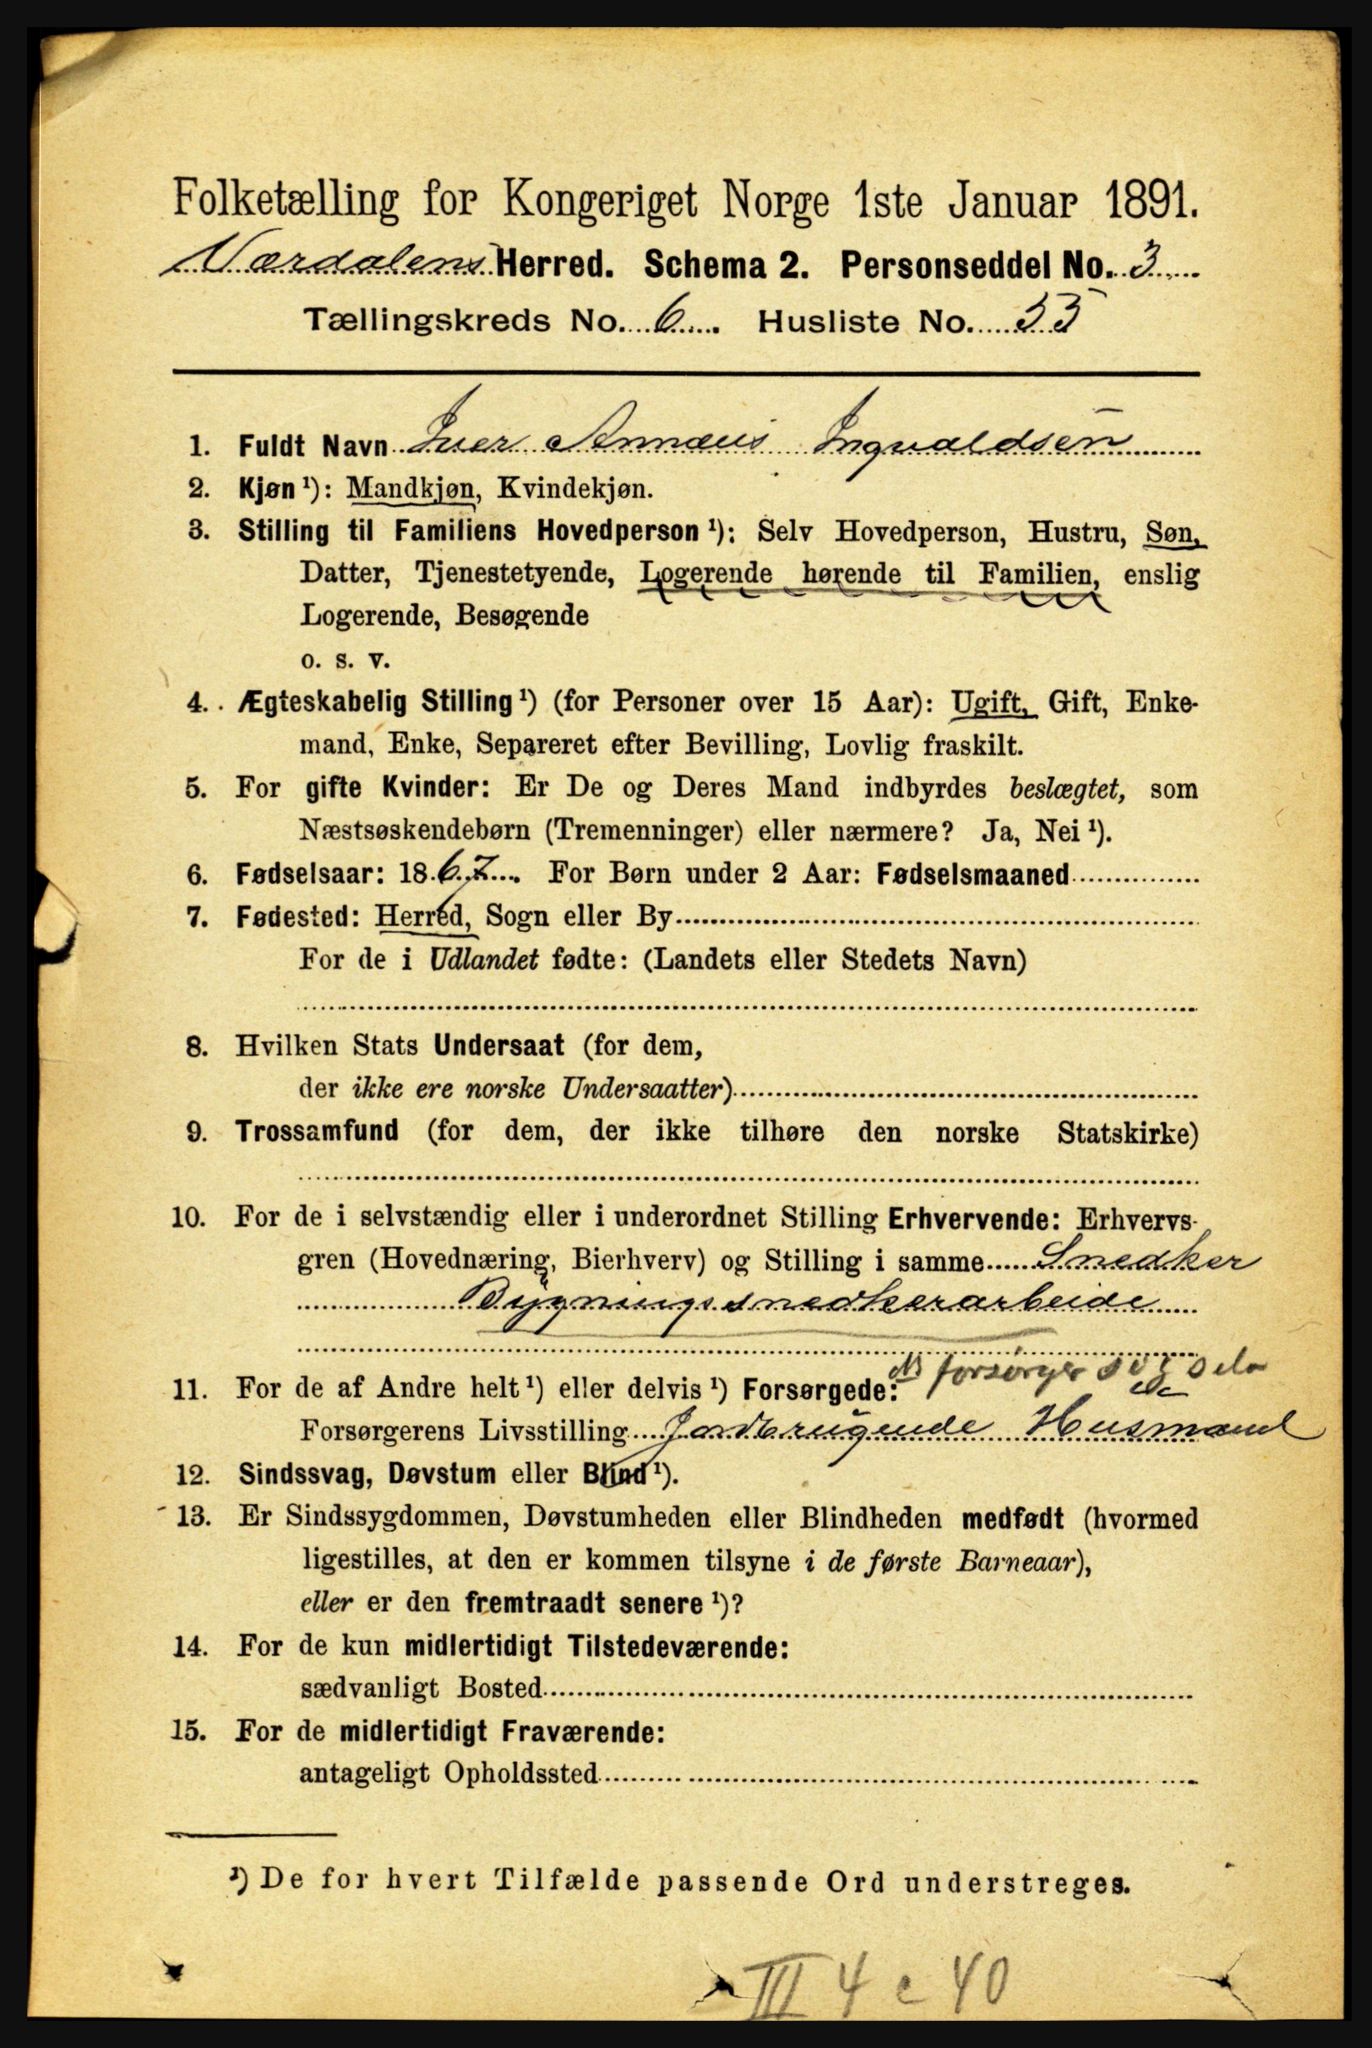 Folketælling for Kongeriget Norge 1ste Januar 1891.
Værdalens Herred. Schema 2. Personseddel No. 3
Tællingskreds No. 6 Husliste No. 55
1. Fuldt Navn Iver Annæus Ingvaldsen
2. Kjøn ¹): Mandkjøn, Kvindekjøn.
3. Stilling til Familiens Hovedperson ¹): Selv Hovedperson, Hustru, Søn,
Datter, Tjenestetyende, Logerende hørende til Familien, enslig
Logerende, Besøgende
o. s. v.
4. Ægteskabelig Stilling ¹) (for Personer over 15 Aar): Ugift, Gift, Enke-
mand, Enke, Separeret efter Bevilling, Lovlig fraskilt.
5. For gifte Kvinder: Er De og Deres Mand indbyrdes beslægtet, som
Næstsøskendebørn (Tremenninger) eller nærmere? Ja, Nei ¹).
6. Fødselsaar: 1867. For Børn under 2 Aar: Fødselsmaaned
7. Fødested: Herred, Sogn eller By
For de i Udlandet fødte: (Landets eller Stedets Navn)
8. Hvilken Stats Undersaat (for dem,
der ikke ere norske Undersaatter)
9. Trossamfund (for dem, der ikke tilhøre den norske Statskirke)
10. For de i selvstændig eller i underordnet Stilling Erhvervende: Erhvervs-
gren (Hovednæring, Bierhverv) og Stilling i samme Snedker
Bygningssnedkerarbeide
forsørger sig selv
11. For de af Andre helt ¹) eller delvis ¹) Forsørgede:
Forsørgerens Livsstilling Jordbrugende Husmand
12. Sindssvag, Døvstum eller Blind ¹).
13. Er Sindssygdommen, Døvstumheden eller Blindheden medfødt (hvormed
ligestilles, at den er kommen tilsyne i de første Barneaar),
eller er den fremtraadt senere ¹)?
14. For de kun midlertidigt Tilstedeværende:
sædvanligt Bosted
15. For de midlertidigt Fraværende:
antageligt Opholdssted
¹) De for hvert Tilfælde passende Ord understreges.
III 4 c 40